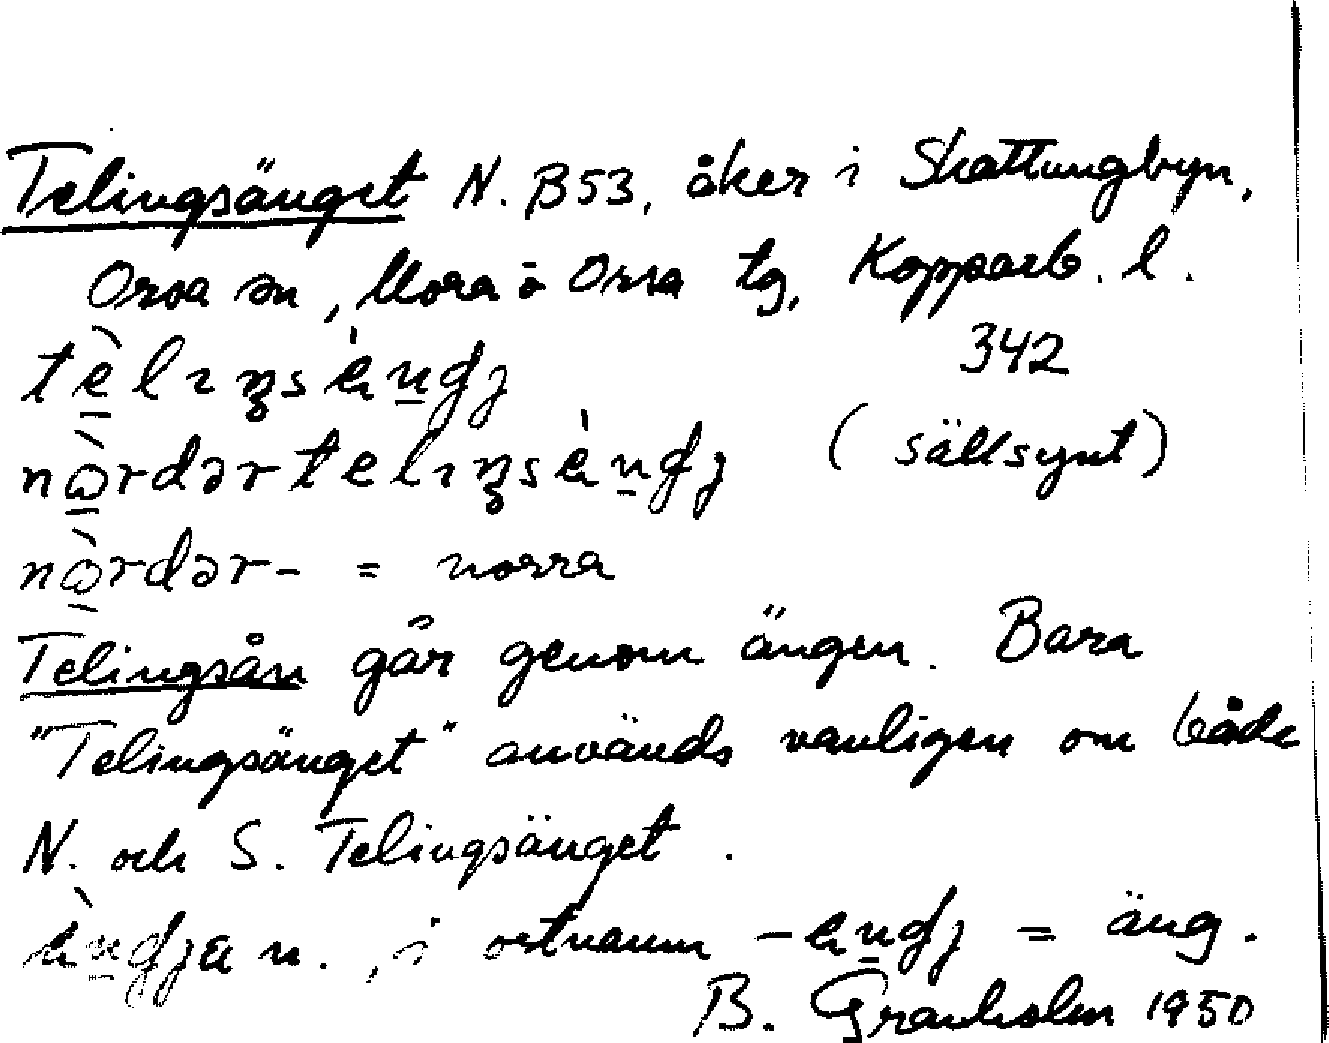 Telingsänget N. B53, åker i Skattungbyn,
Orsa sn, Mora o Orsa tg, Kopparb. l.
tèlıŋsèn̲dj 342
nɷ̀rdərtelıŋsèn̲dj (sällsynt)
nɷ̀rdər- = norra
Telingsån går genom ängen. Bara
"Telingsänget" används vanligen om både
N. och S. Telingsänget.
èn̲dja n., i ortnamn -en̲dj = äng.
B. Granholm 1950